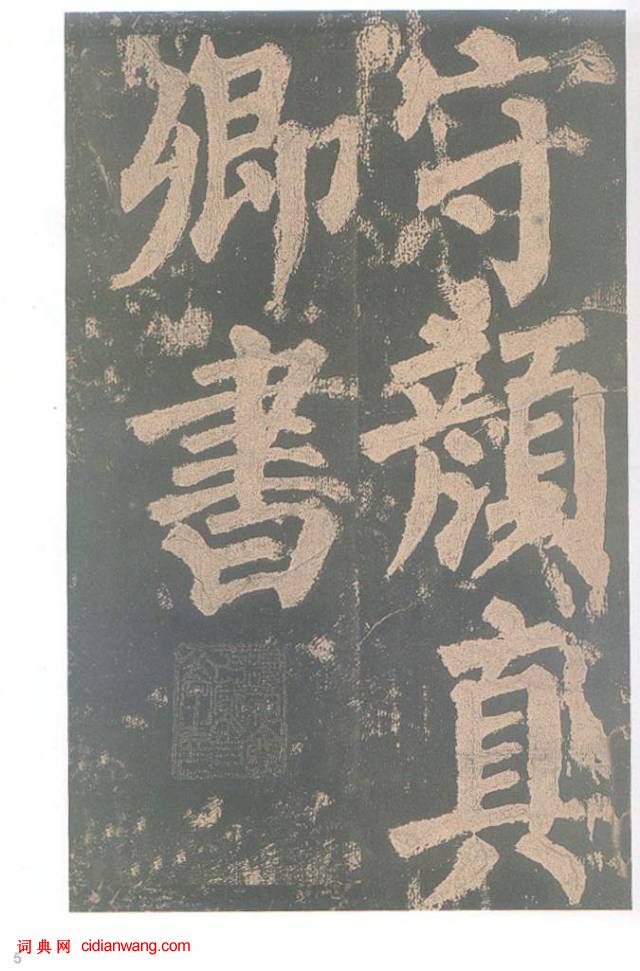 守顏真
卿書
5
词典网 cidianwang.com